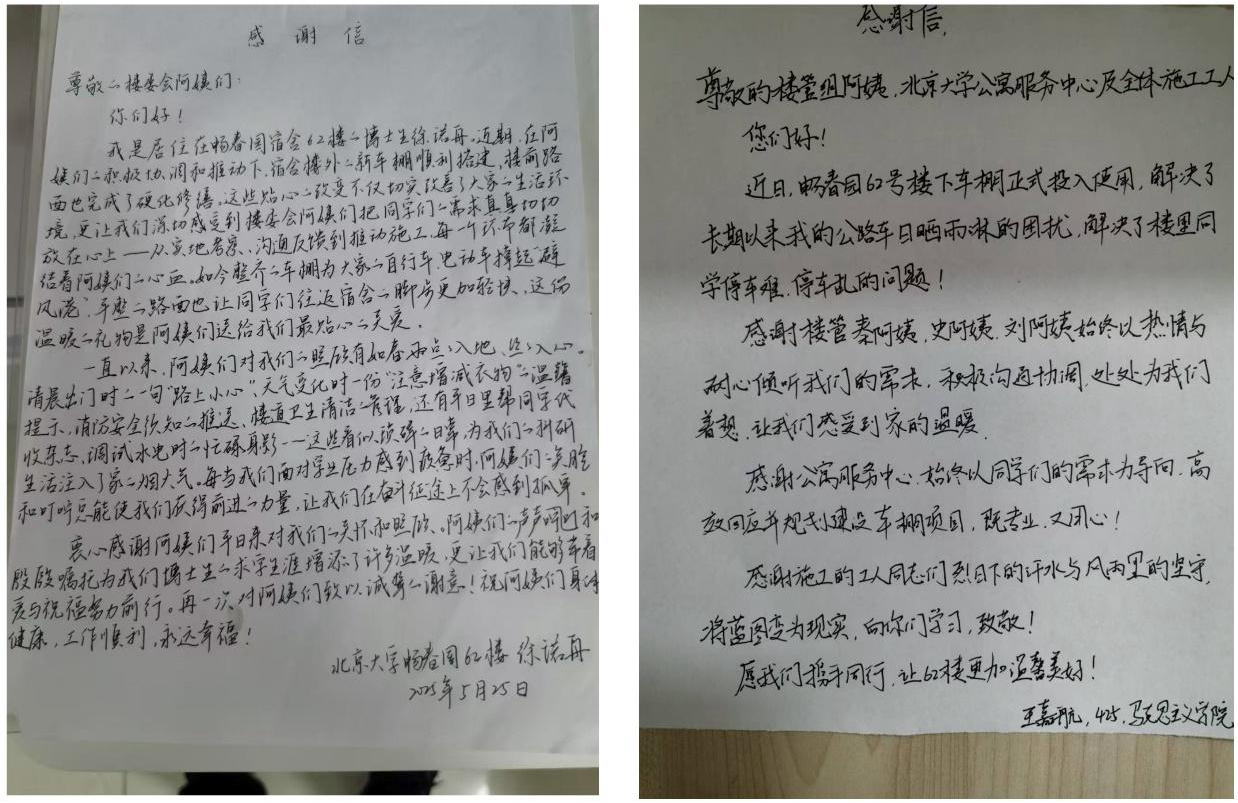 感谢信
尊敬的楼委会阿姨们：
你们好！
我是居住在畅春园宿舍62楼的博士生徐诺舟。近期，在阿
姨们的积极协调和推动下，宿舍楼外的新车棚顺利搭建，楼前路
面也完成了硬化修缮。这些贴心的改变不仅切实改善了大家的生活环
境，更让我们深切感受到楼委会阿姨们把同学们的需求真真切切
放在心上——从实地考察、沟通反馈到推动施工，每一个环节都凝
结着阿姨们的心血。如今整齐的车棚为大家的自行车、电动车撑起“避
风港”，平整的路面也让同学们往返宿舍的脚步更加轻快，这份
温暖的礼物是阿姨们送给我们最贴心的关爱。
一直以来，阿姨们对我们的照顾有如春雨点点入地、丝丝入心。
清晨出门时的一句“路上小心”，天气变化时一份“注意增减衣物”的温馨
提示，消防安全须知的推送、楼道卫生清洁的管理，还有平日里帮同学代
收杂志，调试水电时的忙碌身影——这些看似琐碎的日常，为我们的科研
生活注入了家的烟火气。每当我们面对学业压力感到疲惫时，阿姨们的笑脸
和叮咛总能使我们获得前进的力量，让我们在奋斗征途上不会感到孤单。
衷心感谢阿姨们平日来对我们的关怀和照顾。阿姨们的声声问候和
殷殷嘱托为我们博士生的求学生涯增添了许多温暖，更让我们能够带着
爱与祝福努力前行。再一次对阿姨们致以诚挚的谢意！祝阿姨们身体
健康，工作顺利，永远幸福！
北京大学畅春园62楼 徐诺舟
2025年5月25日
感谢信
尊敬的楼管组阿姨、北京大学公寓服务中心及全体施工工人
您们好！
近日，畅春园62号楼下车棚正式投入使用，解决了
长期以来我的公路车日晒雨淋的困扰，解决了楼里同
学停车难、停车乱的问题！
感谢楼管秦阿姨、史阿姨、刘阿姨始终以热情与
耐心倾听我们的需求，积极沟通协调，处处为我们
着想，让我们感受到家的温暖。
感谢公寓服务中心，始终以同学们的需求为导向，高
效回应并规划建设车棚项目，既专业，又用心！
感谢施工的工人同志们烈日下的汗水与风雨里的坚守，
将蓝图变为现实，向你们学习，致敬！
愿我们携手同行，让62楼更加温馨美好！
王嘉航，425，马克思主义学院